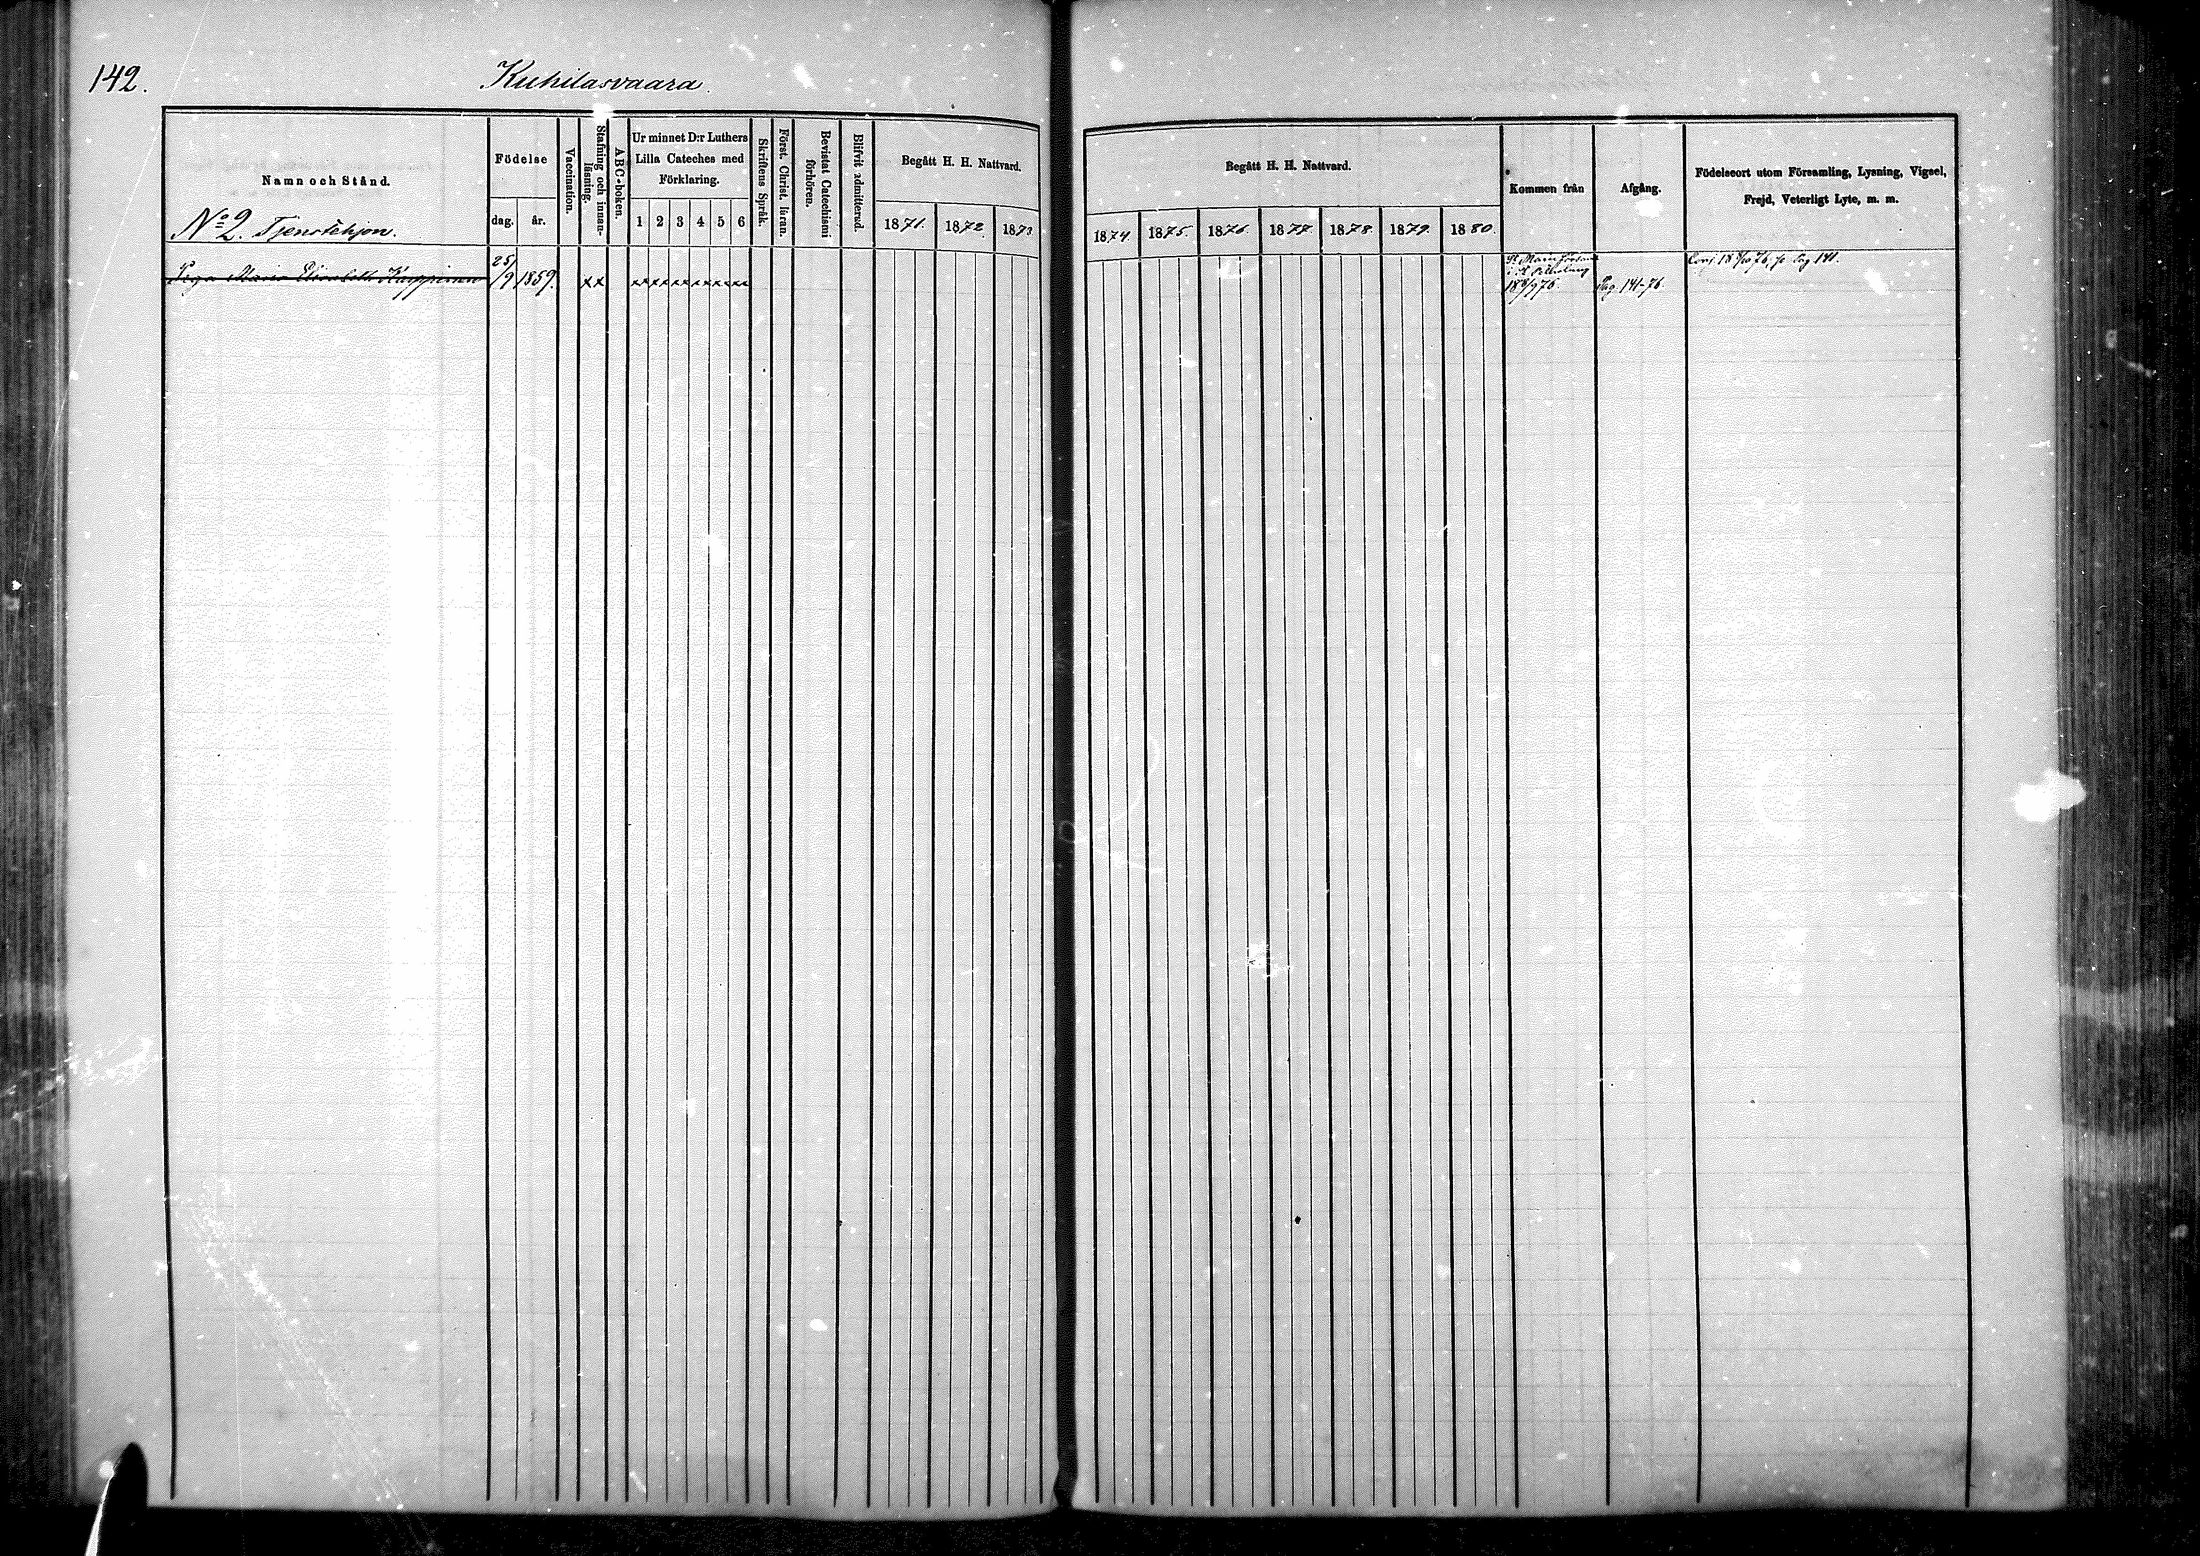 142.
Kuhilasvaara.
Namn och Stånd.
No 2. Tjenstehjon.
Födelse
dag.
år.
Vaccination.
Stafning och innan-
läsning.
ABC-boken.
Ur minnet D:r Luthers
Lilla Cateches med
Förklaring.
1 2 3 4 5 6
Skriftens Språk.
Först. Christ. läran.
Bevistat Catechismi
förhören.
Blifvit admitterad.
Begått H. H. Nattvard.
1871. 1872. 1873.
Begått H. H. Nattvard.
1874. 1875. 1876. 1877. 1878. 1879. 1880.
Kommen från
Afgång.
Födelseort utom Församling, Lysning, Vigsel,
Frejd, Veterligt Lyte, m. m.
Piga Maria Elisabeth Kuppinen
25/9 1859.
xx
xxxxxxxxxxxx
St. Marie Församl
i St. Petersburg
18 6/9 76
Pag. 141-76
18 76, pag 141.